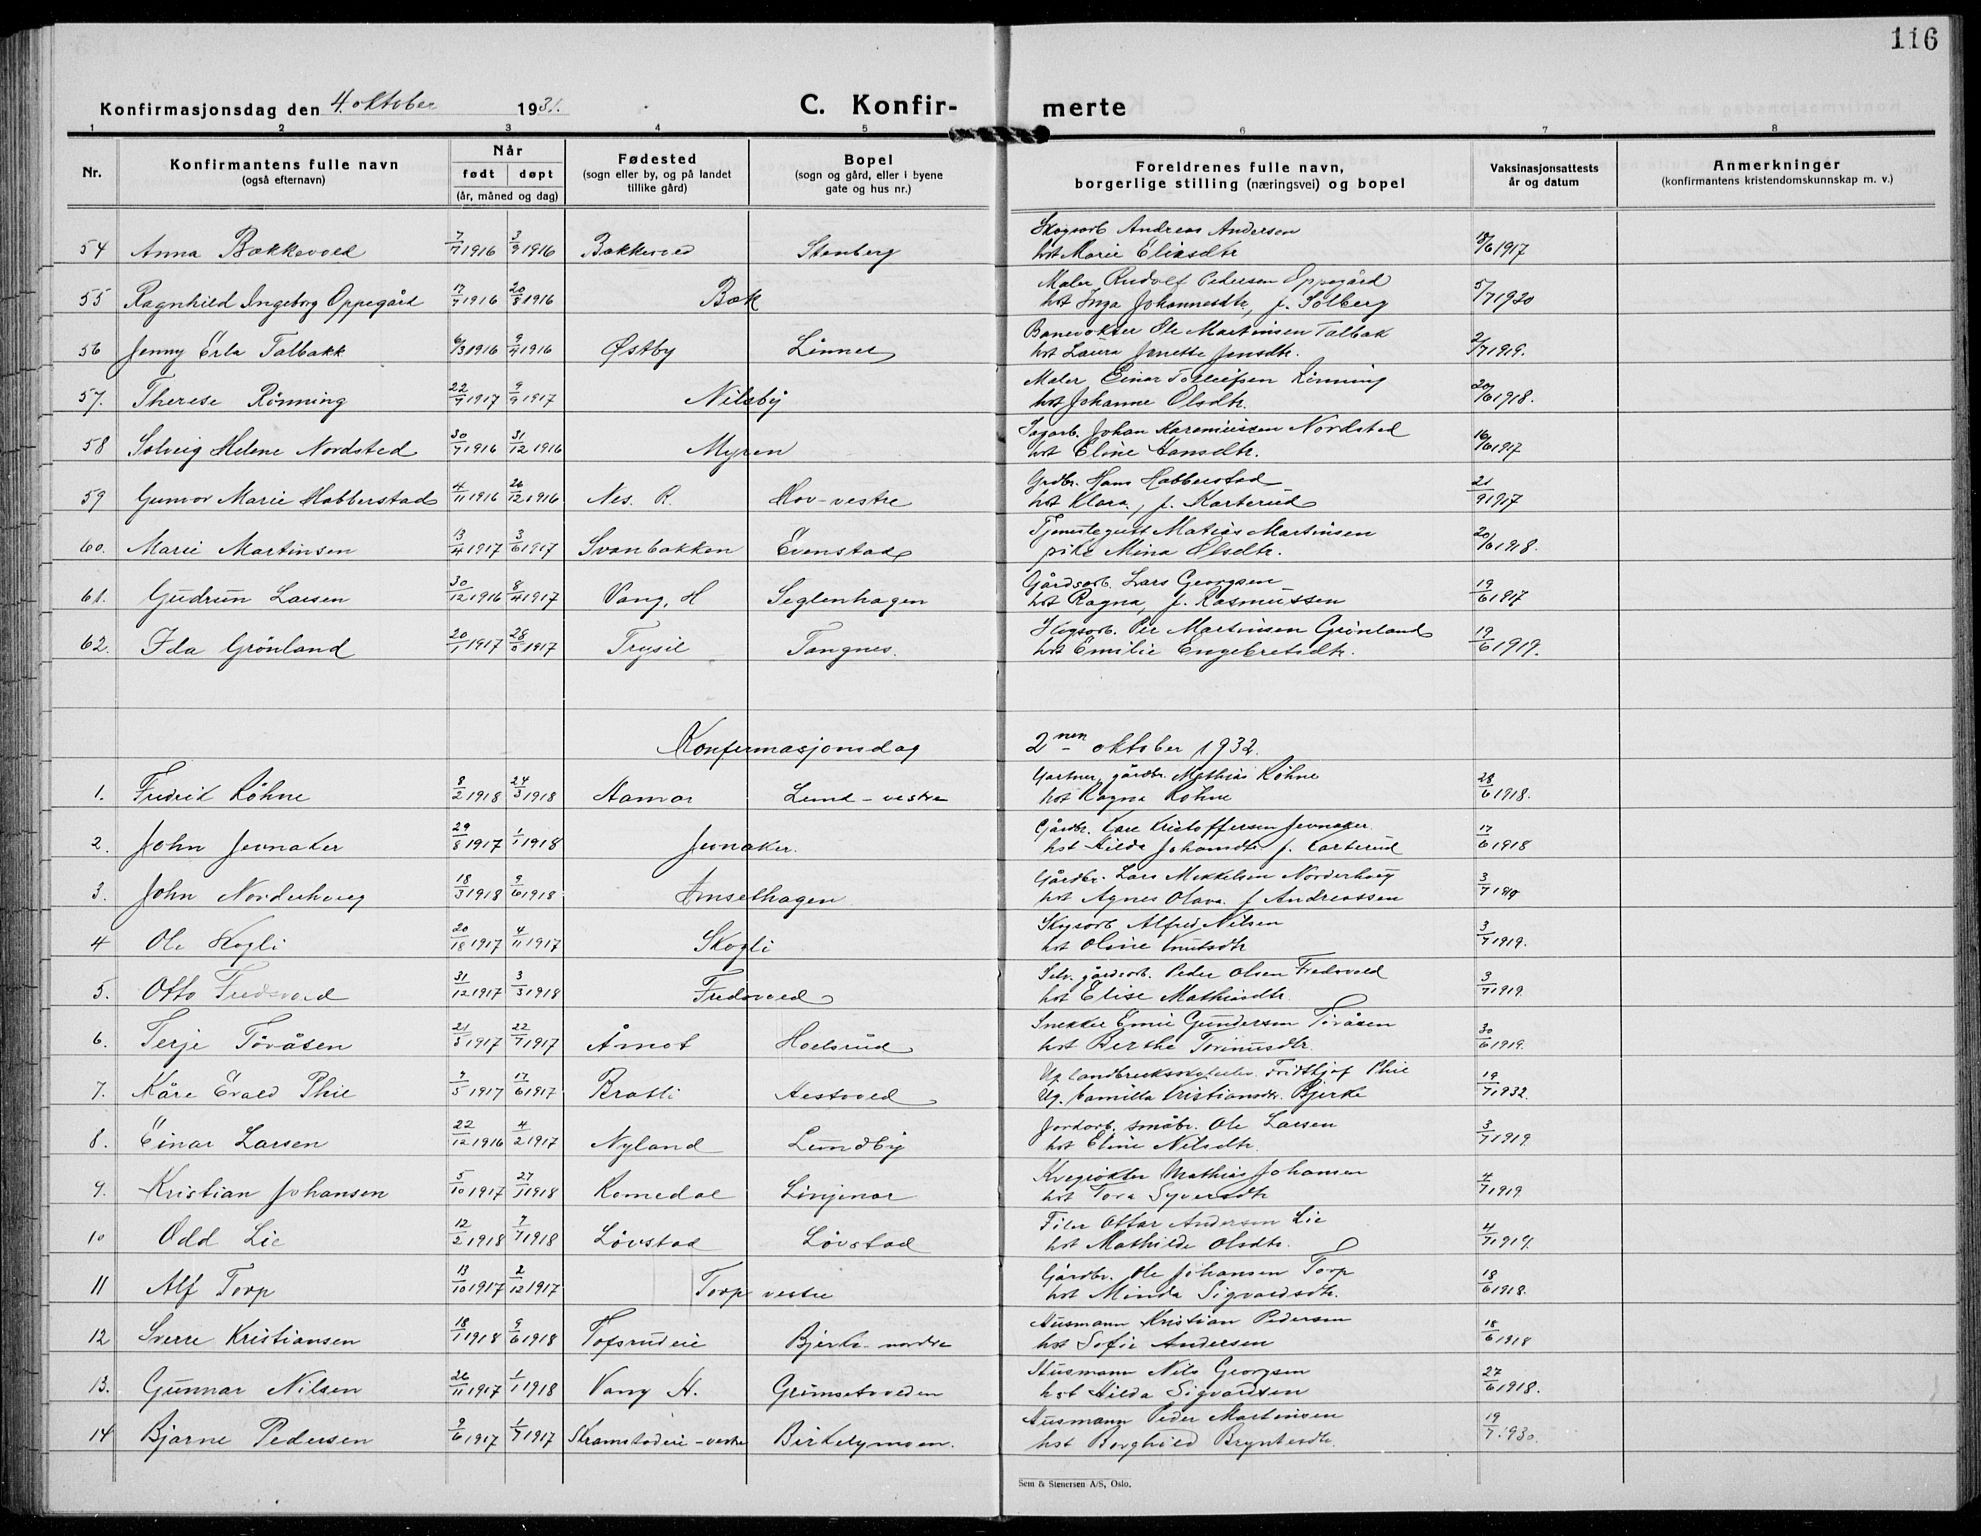 116
Konfirmasjonsdag den 4. oktober 1931. C. Konfir- merte
1 2 3 4 5 6 7 8
Nr. Konfirmantens fulle navn (også efternavn) Når født døpt (år, måned og dag) Fødested (sogn eller by, og på landet tillike gård) Bopel (sogn og gård, eller i byene gate og hus nr.) Foreldrenes fulle navn, borgerlige stilling (næringsvei) og bopel Vaksinasjonsattests år og datum Anmerkninger (konfirmantens kristendomskunnskap m. v.)
54 Anna Bækkevold 7/7 1916 3/9 1916 Bækkevold Stenberg Skogsarb. Andreas Andersen
hst Marie Eliasdtr 18/6 1917
55 Ragnhild Ingeborg Oppegård 17/7 1916 20/8 1916 Bæk Maler Rudolf Pedersen Oppegård
hst Inga Johannesdtr, f. Solberg 5/7 1920
56 Jenny Erla Talbakk 6/3 1916 9/4 1916 Østby Linnes Banevokter Ole Martinsen Talbak
hst Laura Jonette Jensdtr. 2/7 1919.
57. Therese Rønning 22/7 1917 9/9 1917 Nilsby Maler Einar Tollefsen Rønning
hst Johanne Olsdtr. 20/6 1918.
58 Solveig Helene Nordsted 30/7 1916 31/12 1916 Myren Sagarb. Johan Rasmussen Nordsted
hst Eline Hansdtr. 16/6 1917
59 Gunvor Marie Habberstad 4/11 1916 26/12 1916 Nes. R. Hov-vestre Grdbr. Hans Habberstad
hst Klara, f. Karterud 21/9 1917
60. Marie Martinsen 13/4 1917 3/6 1917 Svenbakken Evenstad Tjenestegutt Matias Martinsen
pike Mina Olsdtr. 20/6 1918.
61. Gudrun Larsen 30/12 1916 8/4 1917 Vang, H Seglenhagen Gårdsarb. Lars Georgsen
hst Ragna, f. Rasmussen 19/6 1917
62. Ida Grønland 20/1 1917 28/5 1917 Trysil Tangnes. Skogsarb. Per Martinsen Grønland
hst Emilie Engebretsdtr. 19/6 1919.
Konfirmasjonsdag 2nen oktober 1932.
1. Fredrik Røhne 8/2 1918 24/3 1918 Hamar Lund-vestre Gartner, gårdbr. Mathias Røhne
hst Ragna Røhne 28/6 1918.
2. John Jevnaker 29/8 1917 1/1 1918 Jevnaker. Gårdbr. Kare Kristoffersen Jevnaker
hst Hilda Johansdtr f. Carterud 17/6 1918
3. John Norderhoug 18/3 1918 9/6 1918. Imsethagen Gårdbr. Lars Mikkelsen Norderhoug
hst Agnes Olava f Andreassen 3/7
4 Ole Skogli 1917 4/11 1917 Skogli Skogsarb Alfred Nilsen
hst Oline Knutsdtr 3/7 1919.
5. Otto Fredsvold 31/12 1917 3/3 1918 Fredsvold Selv. gårdsarb. Peder Olsen Fredsvold
hst Elise Mathiasdtr. 3/7 1919.
6. Terje Tøråsen 21/5 1917 22/7 1917 Åmot Hoelsrud Snekker Emil Gundersen Tøråsen
hst Berthe Torinusdtr. 30/6 1919.
7. Kåre Evald Phil 7/5 1917 17/6 1917 Bratli Hestvold Ug. Fridtljof Phil
Ug. Camilla Kristiansdtr. Bjerke 19/7 1932.
8. Einar Larsen 22/12 1916 4/2 1917 Nyland Lundby Jordarb. småbr. Ole Larsen
hst Eline Nilsdtr. 3/7 1919.
9. Kristian Johansen 5/10 1917 27/1 1918 Romedal Linjenar Kvegrøkter Mathias Johansen
hst Tora Syversdtr 4/7 1919
10 Odd Lie 12/2 1918 7/7 1918 Løvstad Løvstad Filer Ottar Andersen Lie
hst Mathilde Olsdtr. 4/7 1919.
11 Alf Torp 13/10 1917 2/12 1917 Torp vestre Gårdbr. Ole Johansen Torp
hst Minda Sigvardsdtr. 18/6 1918.
12 Sverre Kristiansen 18/1 1918 9/6 1918 Tofsrudeie Bjerke-nordre Husmann Kristian Pedersen
hst Sofie Andersen 18/6 1918
13. Gunnar Nilsen 26/11 1917 1/1 1918 Vang H. Grimsetveden Husmann Nils Georgsen
hst Hilda Sigvardsen 27/6 1918.
14 Bjarne Pedersen 9/6 1917 1/7 1917 Skramstadeie-vestre Birkelymoen. Husmann Peder Martinsen
hst Borghild Bryntesdtr. 19/7 1930.
Sem & Stenersen A/S, Oslo.